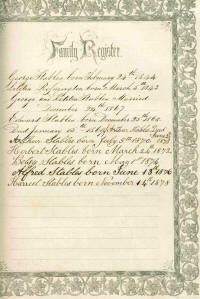 Family Register.
George Stables born February 24th 1844
Letitia born March 4th 1843
George and Letitia Stables Married
December 24th 1867
Edward Stables born December 25th 1868.
Died January 1869 Arthur Stables Died
Arthur Stables born July 5th 1870 June 1871
Herbert Stables born March 24 1872
Betsy Stables born May 1st 1874
Alfred Stables born June 18 1876
Harriet Stables born November 14th 1878